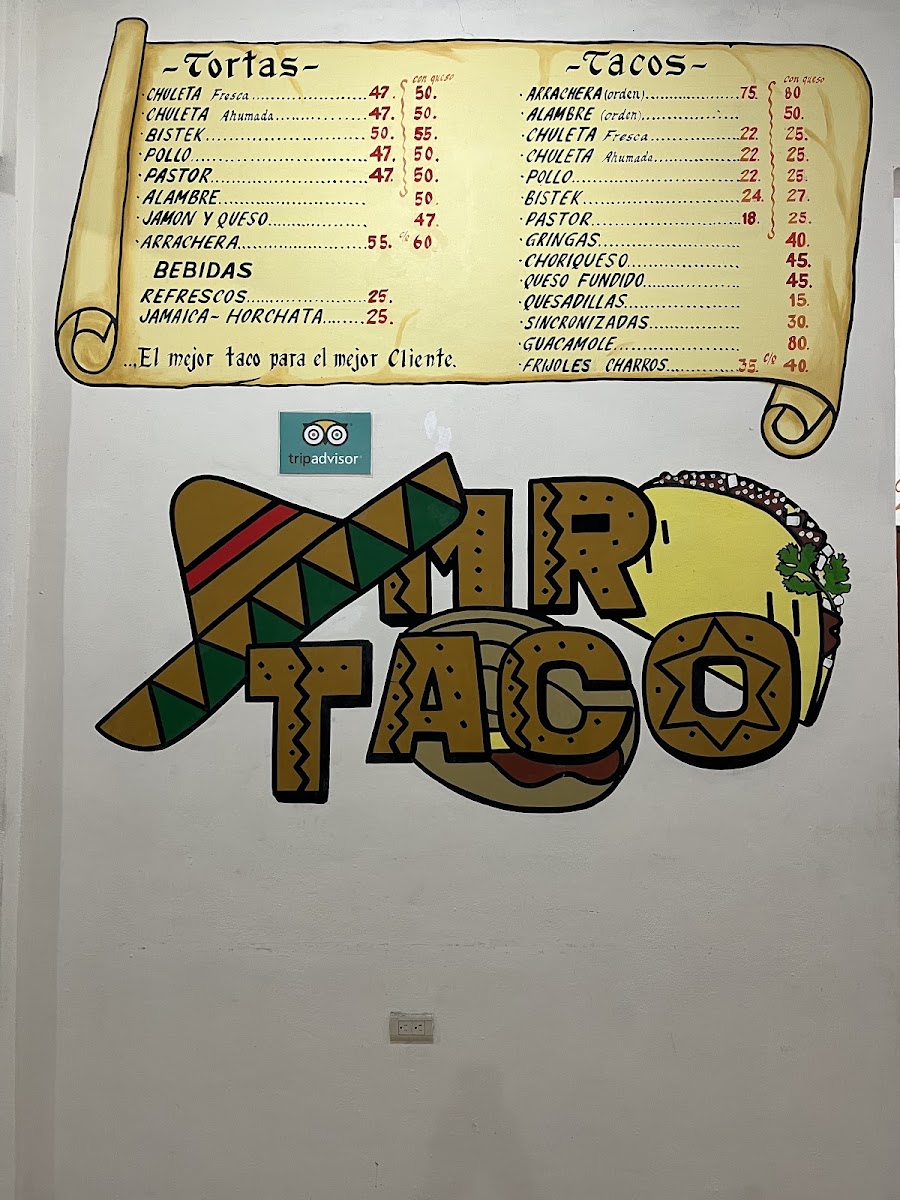 -Tortas-
con queso
·CHULETA Fresca.....................47. 50.
·CHULETA Ahumada................47. 50.
·BISTEK............................50. 55.
·POLLO..............................47. 50.
·PASTOR..........................47. 50.
·ALAMBRE........................ 50.
·JAMON Y QUESO................ 47.
·ARRACHERA.....................55. c/q 60.
BEBIDAS
REFRESCOS.....................25.
JAMAICA~HORCHATA........25.
...El mejor taco para el mejor Cliente.
-Tacos-
con queso
·ARRACHERA (orden)...................75. 80
·ALAMBRE (orden)................ 50.
·CHULETA Fresca.................22. 25.
·CHULETA Ahumada................22. 25.
·POLLO............................22. 25.
·BISTEK...........................24. 27.
·PASTOR..........................18. 25.
·GRINGAS........................ 40.
·CHORIQUESO.................... 45.
·QUESO FUNDIDO................. 45.
·QUESADILLAS.................... 15.
·SINCRONIZADAS................. 30.
·GUACAMOLE..................... 80.
·FRIJOLES CHARROS..............35. c/q 40.
tripadvisor
MR
TACO